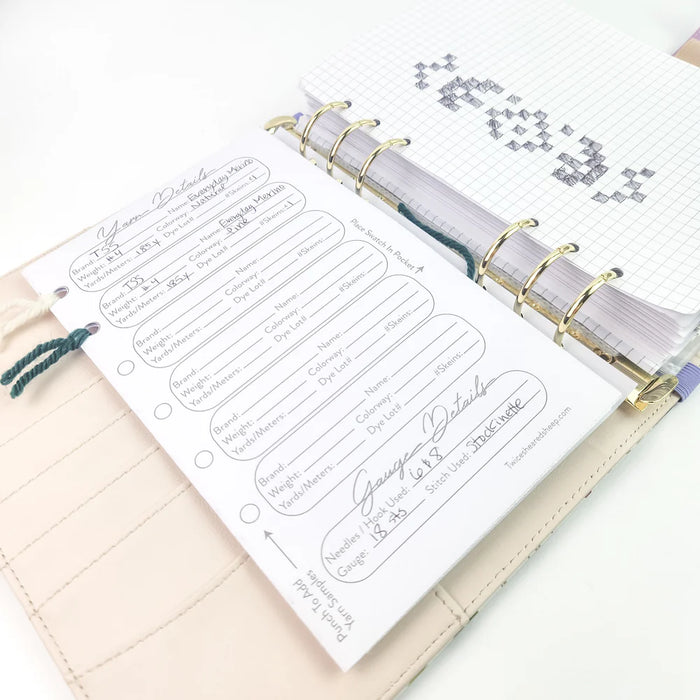 Yarn Details
Brand: TSS Name: Everyday Merino
Weight: #4 Colorway: Natural
Yards/Meters: 185y Dye Lot# #Skeins: 1
Brand: TSS Name: Everyday Merino
Weight: #4 Colorway: Pine
Yards/Meters: 185y Dye Lot# #Skeins: 1
Brand: Name:
Weight: Colorway:
Yards/Meters: Dye Lot# #Skeins:
Brand: Name:
Weight: Colorway:
Yards/Meters: Dye Lot# #Skeins:
Brand: Name:
Weight: Colorway:
Yards/Meters: Dye Lot# #Skeins:
Brand: Name:
Weight: Colorway:
Yards/Meters: Dye Lot# #Skeins:
Gauge Details
Needles / Hook Used: 6 & 8
Gauge: 18 sts Stitch Used: Stockinette
Place Swatch In Pocket
Punch To Add
Yarn Samples
Twicesheared​sheep.com